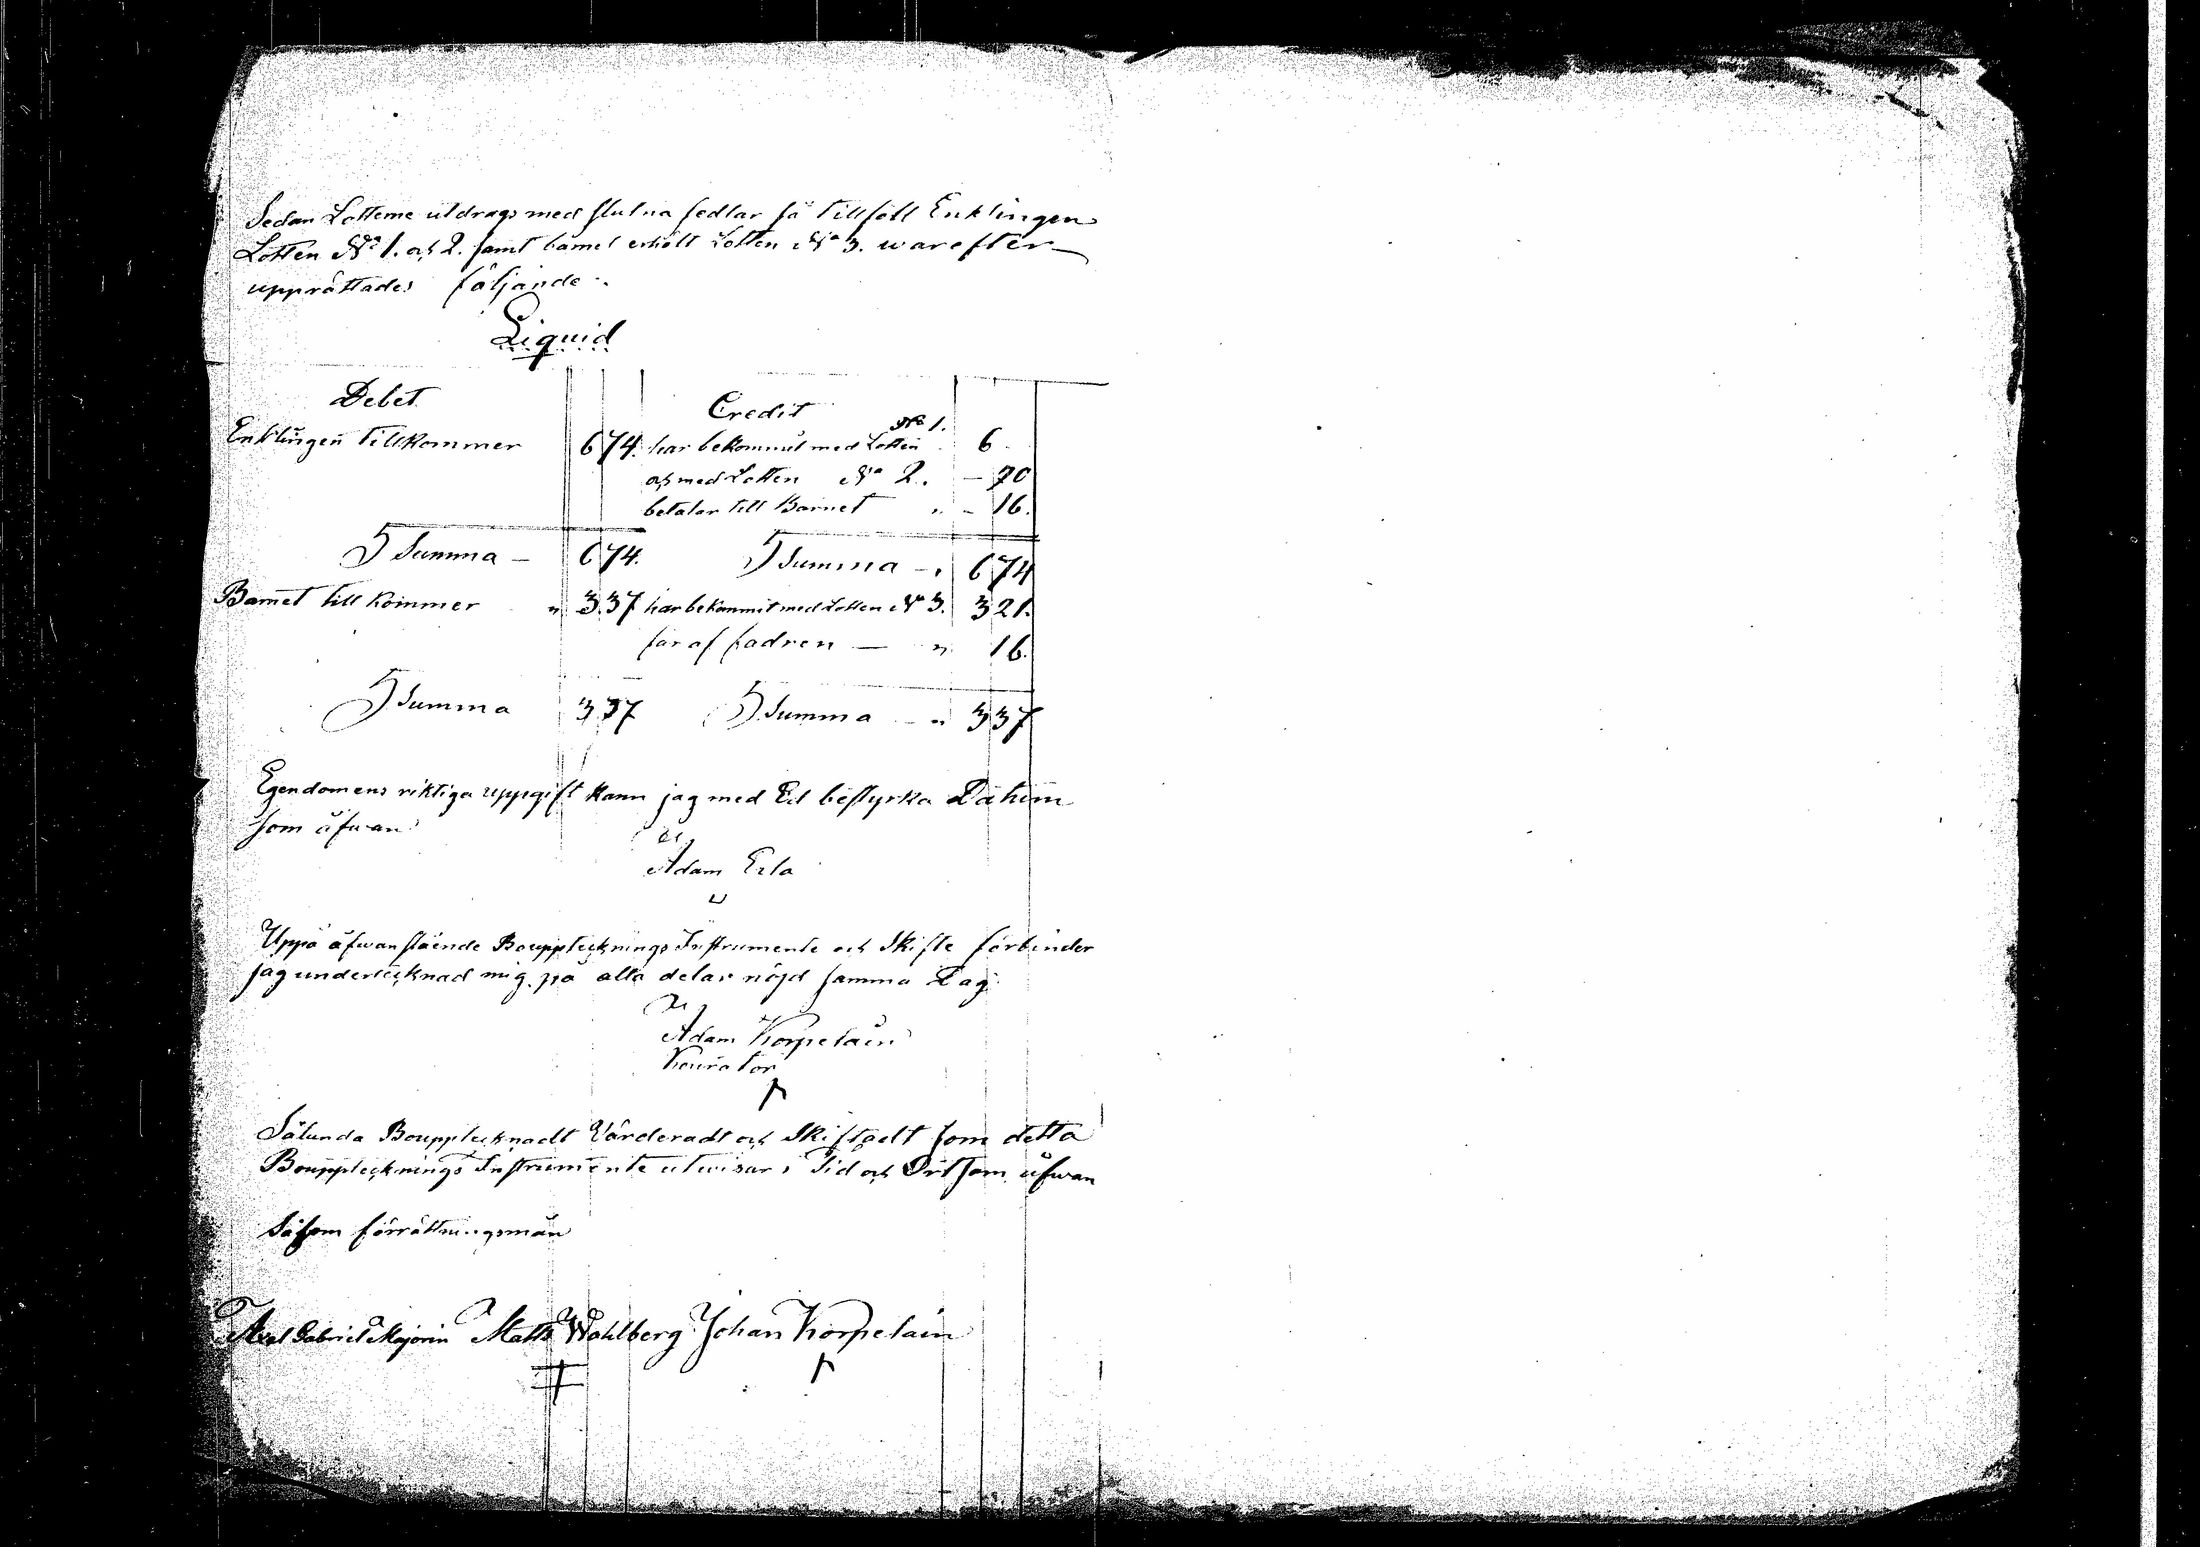 Sedan Lotterne utdrags med slutna sedlar så tillföll Enklingen
Lotten No 1. och 2. samt barnet erhölt Lotten No 3. warefter
upprättades följande:
Liquid
Debet Credit
Enklingen tillkommer 674. har bekommit med Lotten No 1. 6
och med Lotten No 2. - 70
betalar till Barnet " - 16.
Summa - 674. Summa - " 674
Barnet tillkommer " 3.37 har bekommit med Lotten No 3. 321.
får af fadren — " 16.
Summa 337 Summa - " 337
Egendomens riktiga uppgift kann jag med Ed bestyrka Datum
som åfwan
Adam Erla
Uppå åfwanstående Boupptecknings Instrumente och Skifte förbinder
jag undertecknad mig på alla delar nöjd samma Dag
Adam Korpelain
Kourator
Sålunda Boupptecknadt Värderadt och Skiftadt som detta
Boupptecknings Instrumente utwisar, Tid och Ort som åfwan
Såsom förrättningsmän
Axel Gabriel Majorin Matts Wahlberg Johan Korpelain